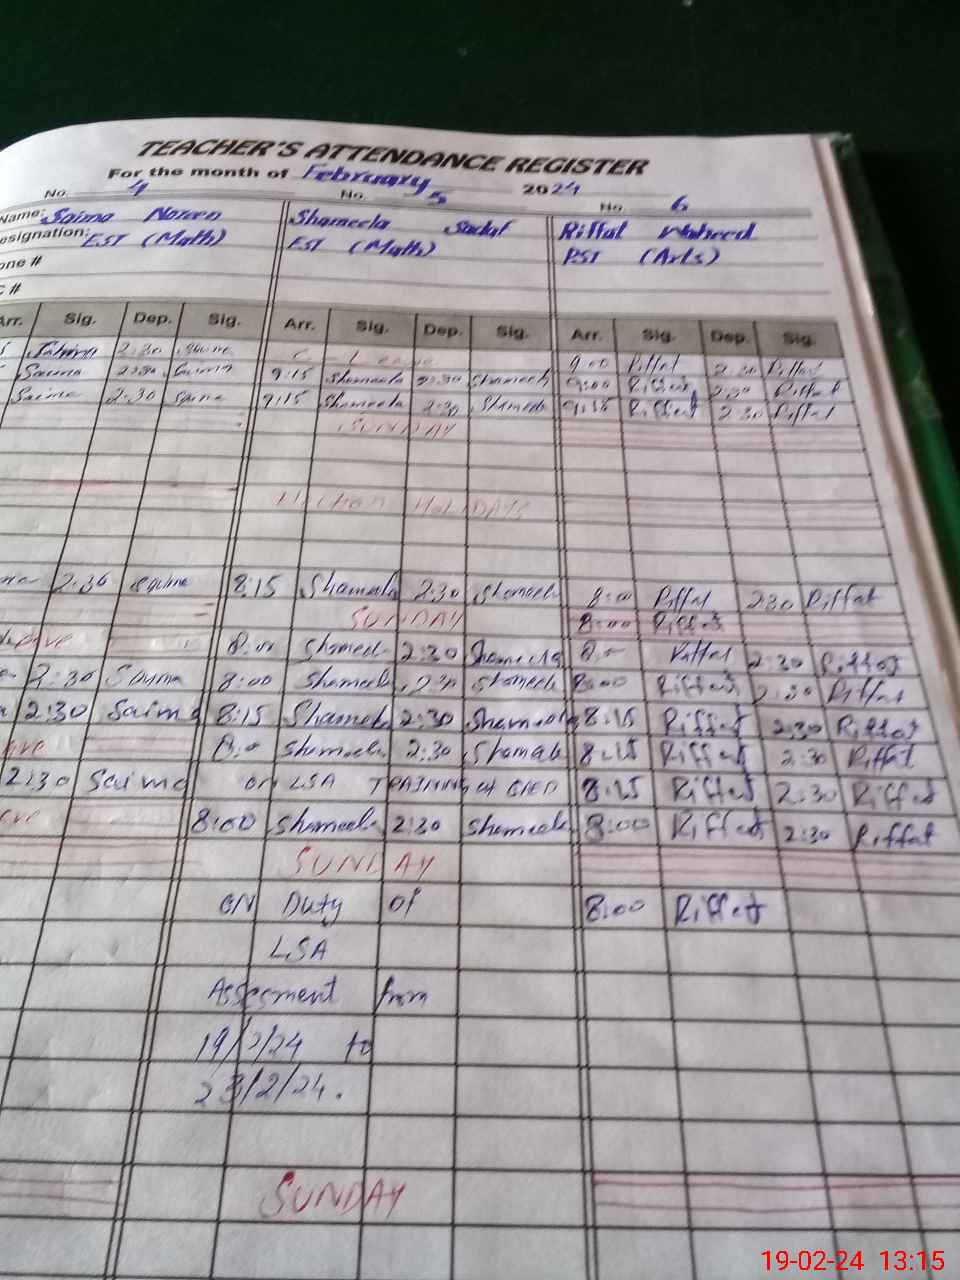 TEACHER'S ATTENDANCE REGISTER
For the month of February 2024
No. 4 No. 5 No. 6
Name: Saima Noreen Shameela Sadaf Riffat Waheed
esignation: EST (Math) EST (Math) PST (Arts)
one #
C #
Arr. Sig. Dep. Sig. Arr. Sig. Dep. Sig. Arr. Sig. Dep. Sig.
2:30 Saima Leave 9:00 Riffat 2:30 Riffat
Saima 2:30 Saima 9:15 Shameela 2:30 Shameela 9:00 Riffat 2:30 Riffat
Saima 2:30 Saima 9:15 Shameela 2:30 Shameela 9:15 Riffat 2:30 Riffat
SUNDAY
Election HOLIDAYS
2:30 Saima 8:15 Shameela 2:30 Shameela 8:00 Riffat 2:30 Riffat
SUNDAY 8:00 Riffat
8:00 Shameela 2:30 Shameela 8:00 Riffat 2:30 Riffat
2:30 Saima 8:00 Shameela 2:30 Shameela 8:00 Riffat 2:30 Riffat
2:30 Saima 8:15 Shameela 2:30 Shameela 8:15 Riffat 2:30 Riffat
ave 8:00 Shameela 2:30 Shameela 8:15 Riffat 2:30 Riffat
2:30 Saima on LSA TRAINING at 8:15 Riffat 2:30 Riffat
ave 8:00 Shameela 2:30 Shameela 8:00 Riffat 2:30 Riffat
SUNDAY
ON Duty of 8:00 Riffat
LSA
Assesment from
19/2/24 to
23/2/24.
SUNDAY
19-02-24 13:15